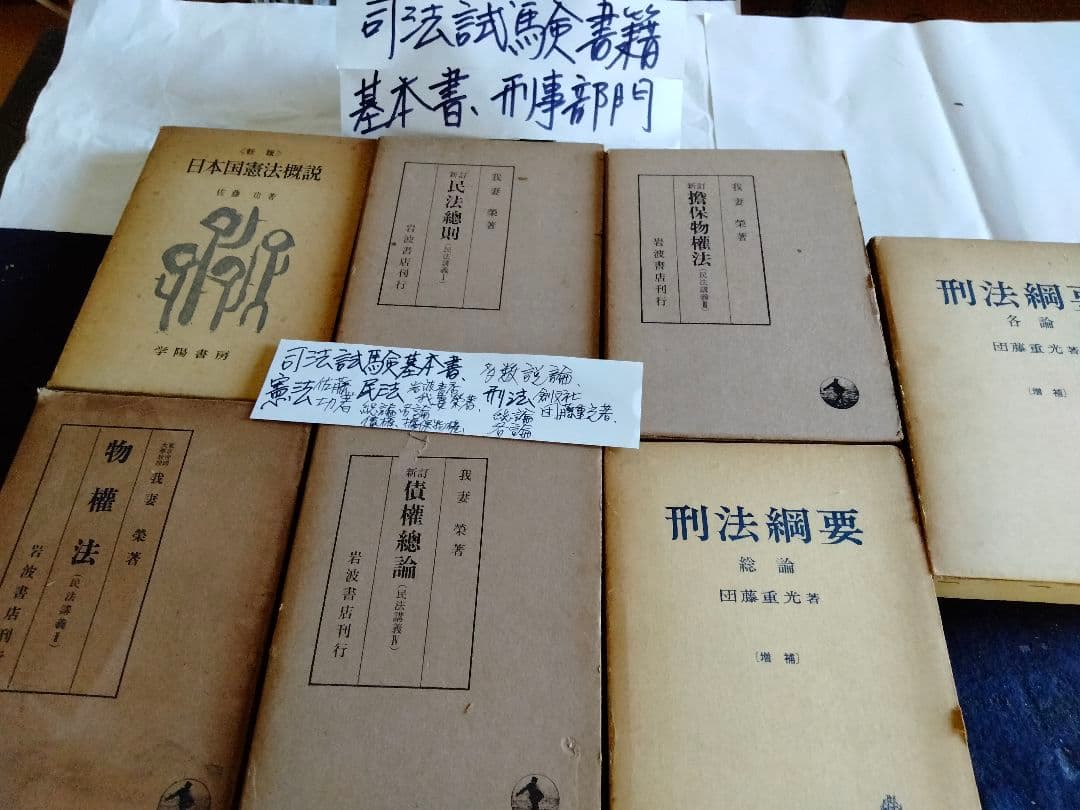 司法試験書籍
基本書、刑事部門
〈新版〉
日本国憲法概説
佐藤 功 著
学陽書房
我妻 榮 著
新訂 民法總則(民法講義I)
岩波書店刊行
我妻 榮 著
新訂 擔保物權法(民法講義III)
岩波書店刊行
刑法綱要
各論
団藤重光著
〔増補〕
司法試験基本書、多数説論、
憲法 佐藤功著 民法 岩波書店 我妻栄著、刑法 創文社
総論 団藤重光著、
債権、担保物権、
各論
我妻 榮 著
物權法(民法講義II)
岩波書店刊行
我妻 榮 著
新訂 債權總論(民法講義IV)
岩波書店刊行
刑法綱要
総論
団藤重光著
〔増補〕